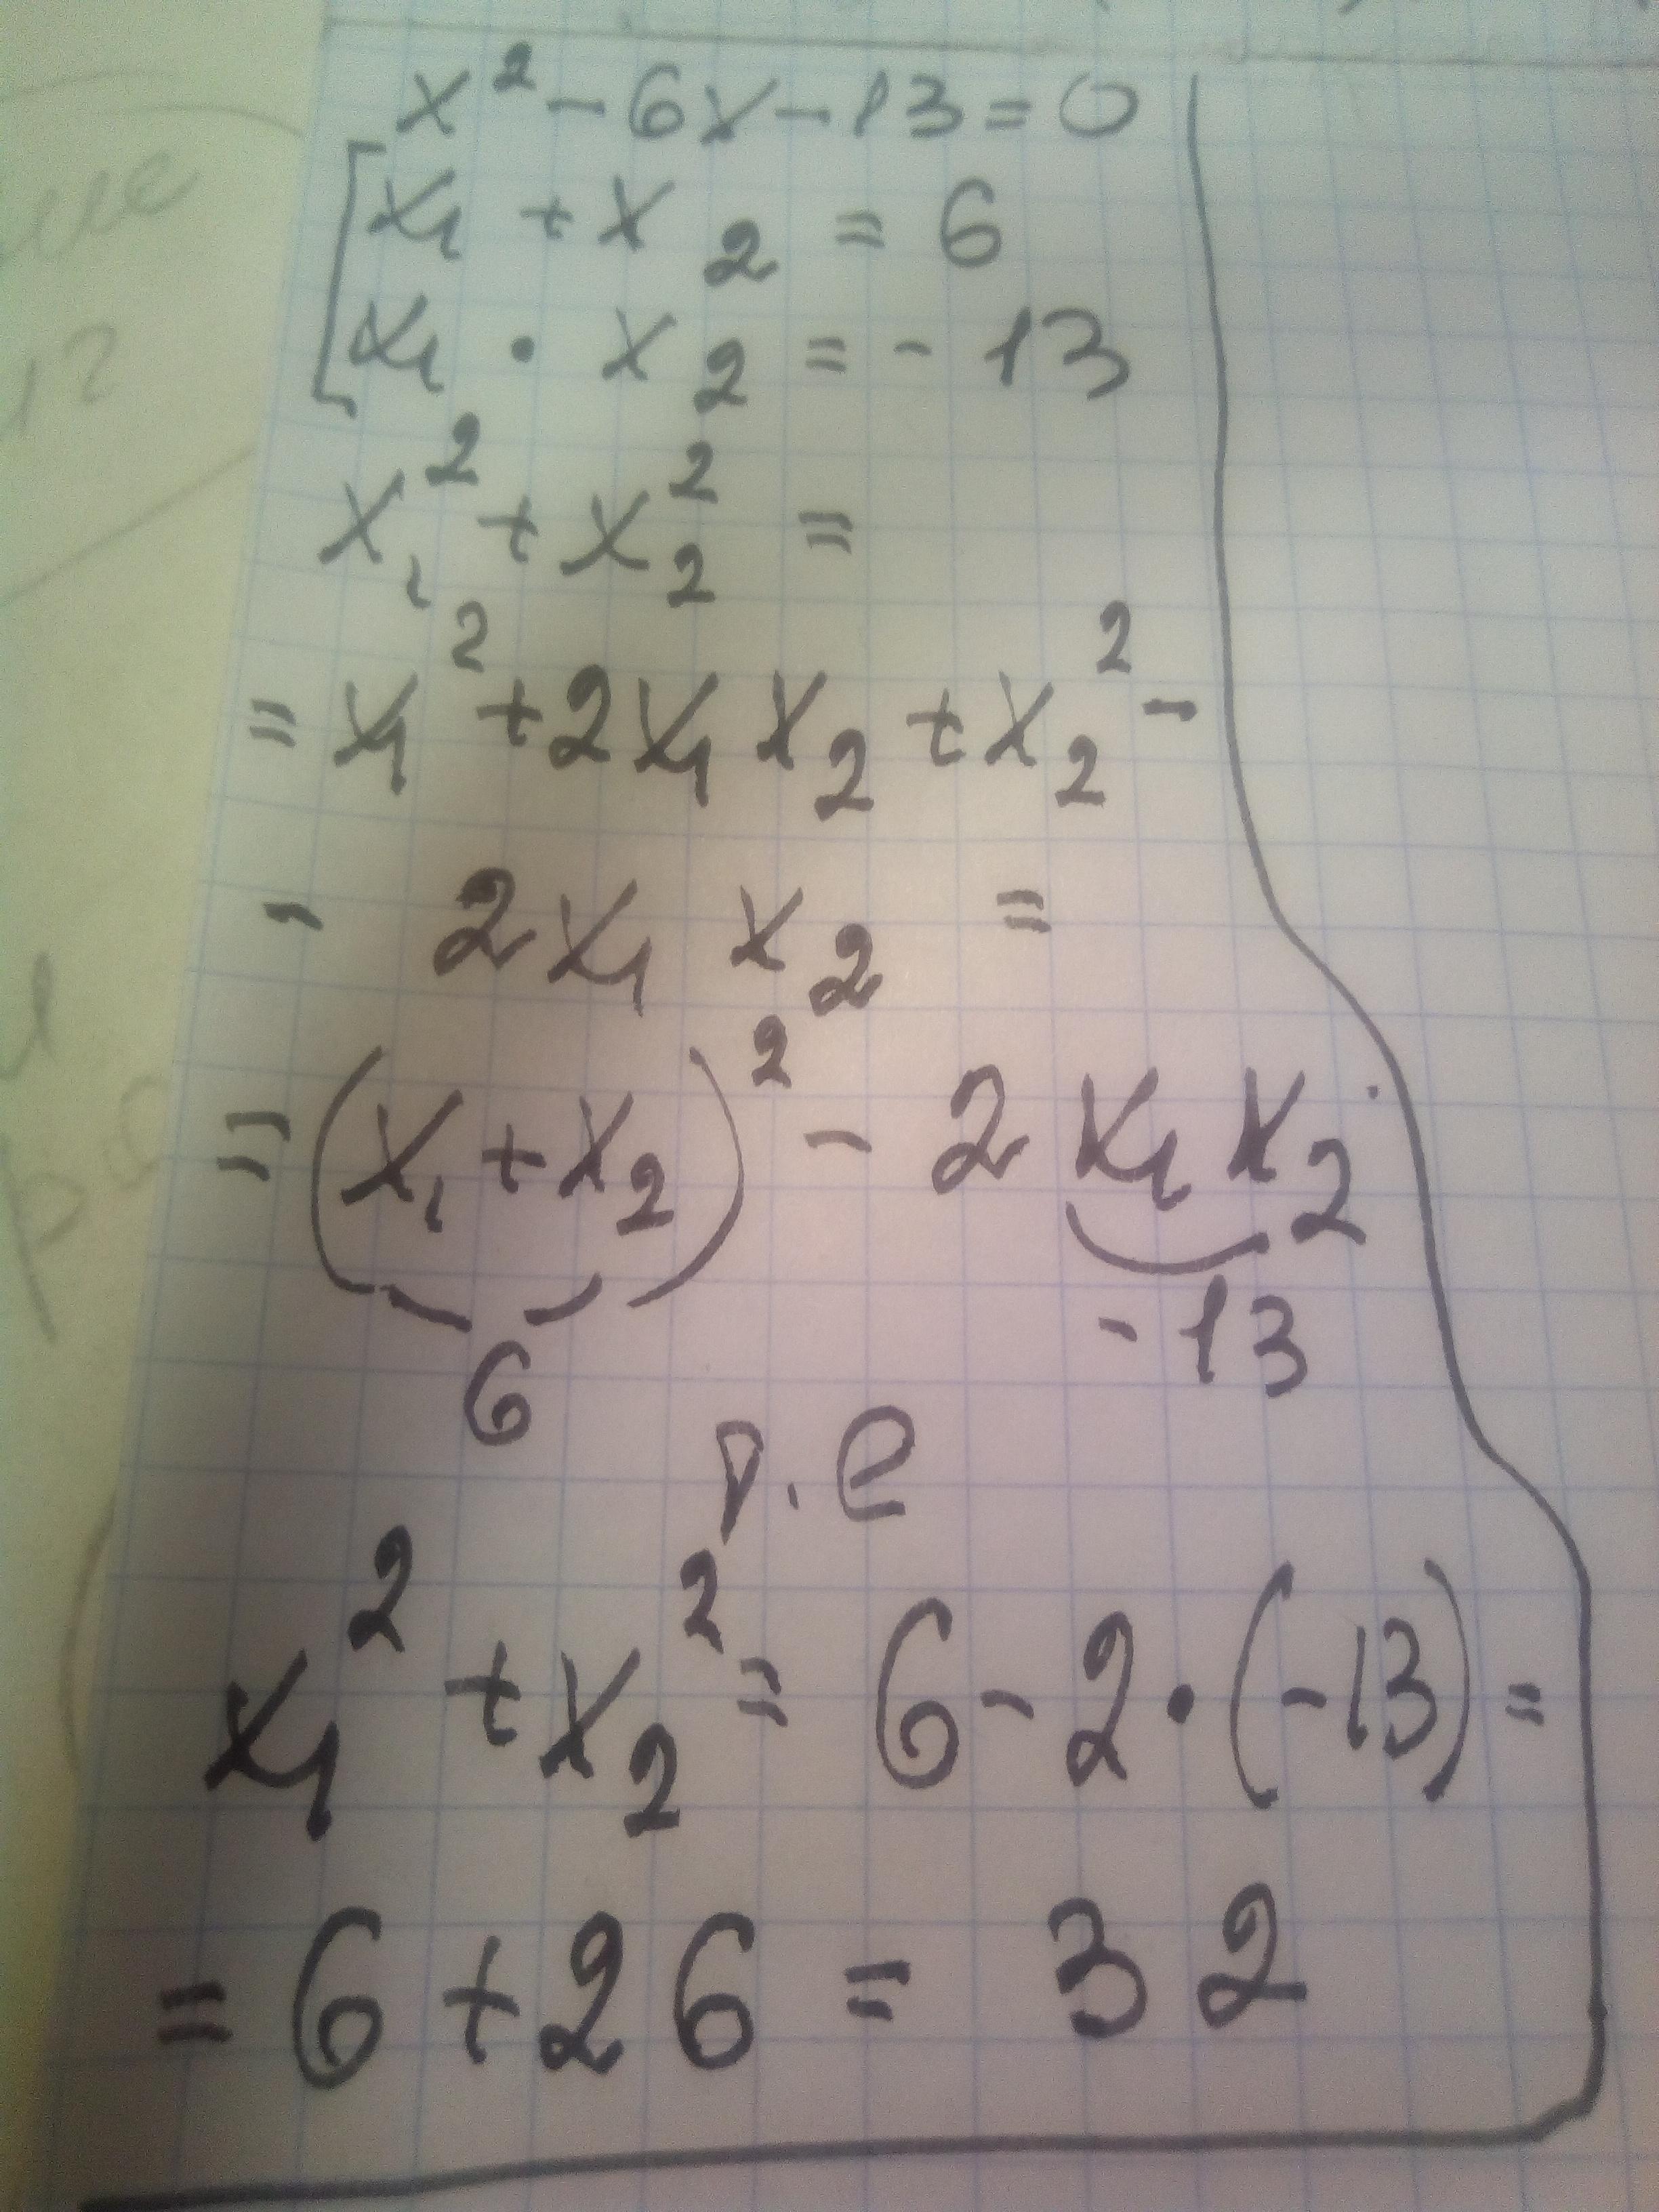 x² - 6x - 13 = 0
x₁ + x₂ = 6
x₁ · x₂ = - 13
x₁² + x₂² =
= x₁² + 2x₁x₂ + x₂² -
- 2x₁x₂ =
= (x₁ + x₂)² - 2x₁x₂
6 - 13
т.е
x₁² + x₂² = 6 - 2 · (-13) =
= 6 + 26 = 32